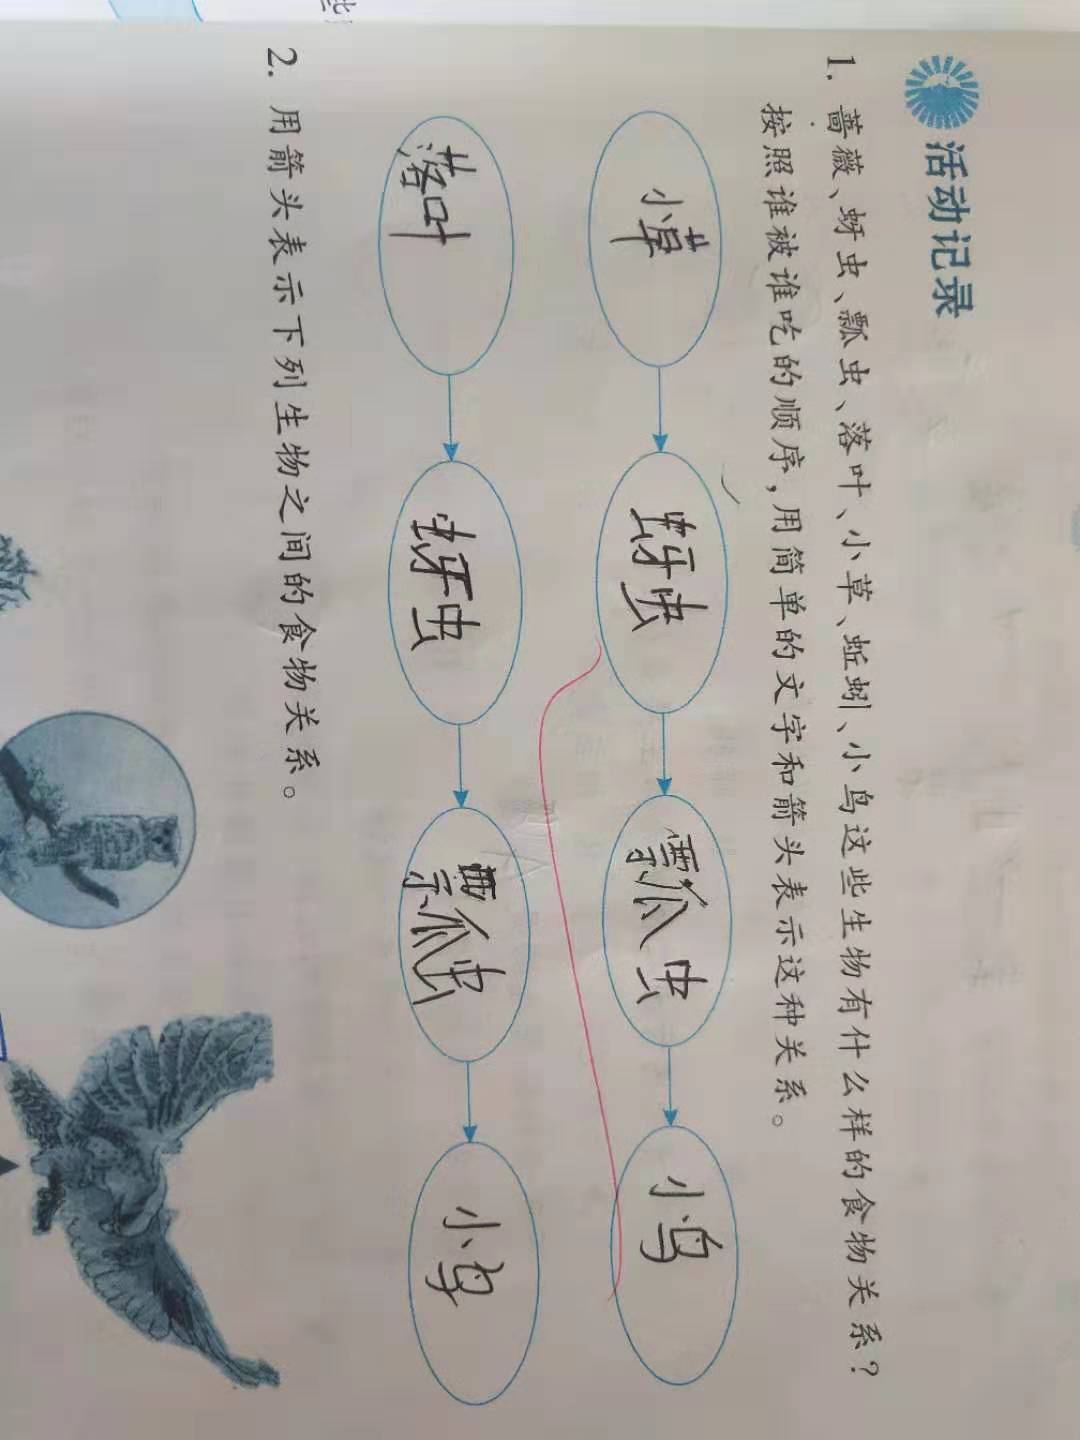 活动记录
1. 蔷薇、蚜虫、瓢虫、落叶、小草、蚯蚓、小鸟这些生物有什么样的食物关系？
按照谁被谁吃的顺序，用简单的文字和箭头表示这种关系。
小草 蚜虫 瓢虫 小鸟
落叶 蚜虫 瓢虫 小鸟
2. 用箭头表示下列生物之间的食物关系。